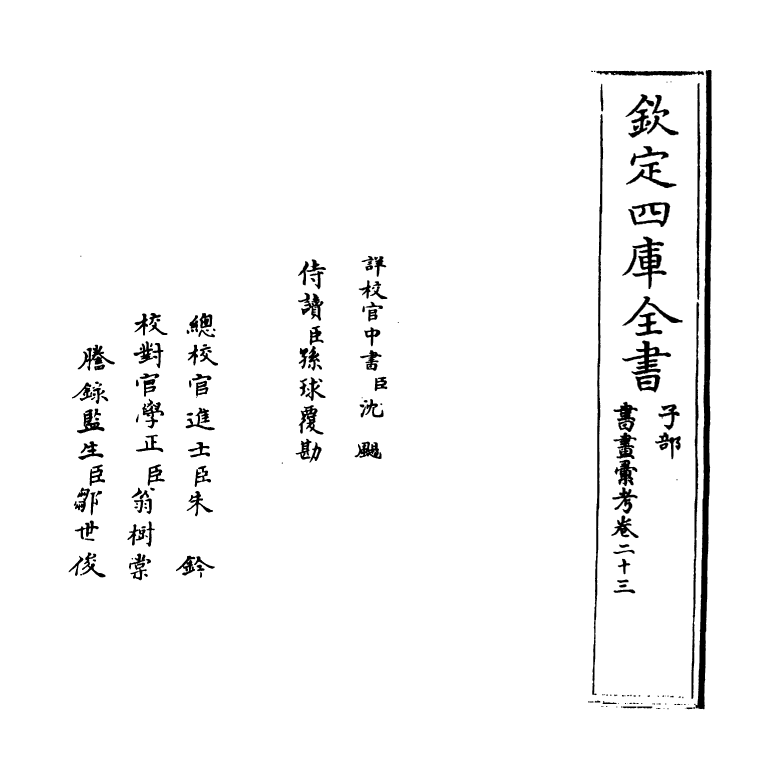 欽定四庫全書
子部
書畫彚考卷二十三
詳校官中書臣沈颺
侍讀臣孫球覆勘
總校官進士臣朱鈐
校對官學正臣翁樹棠
謄錄監生臣鄒世俊